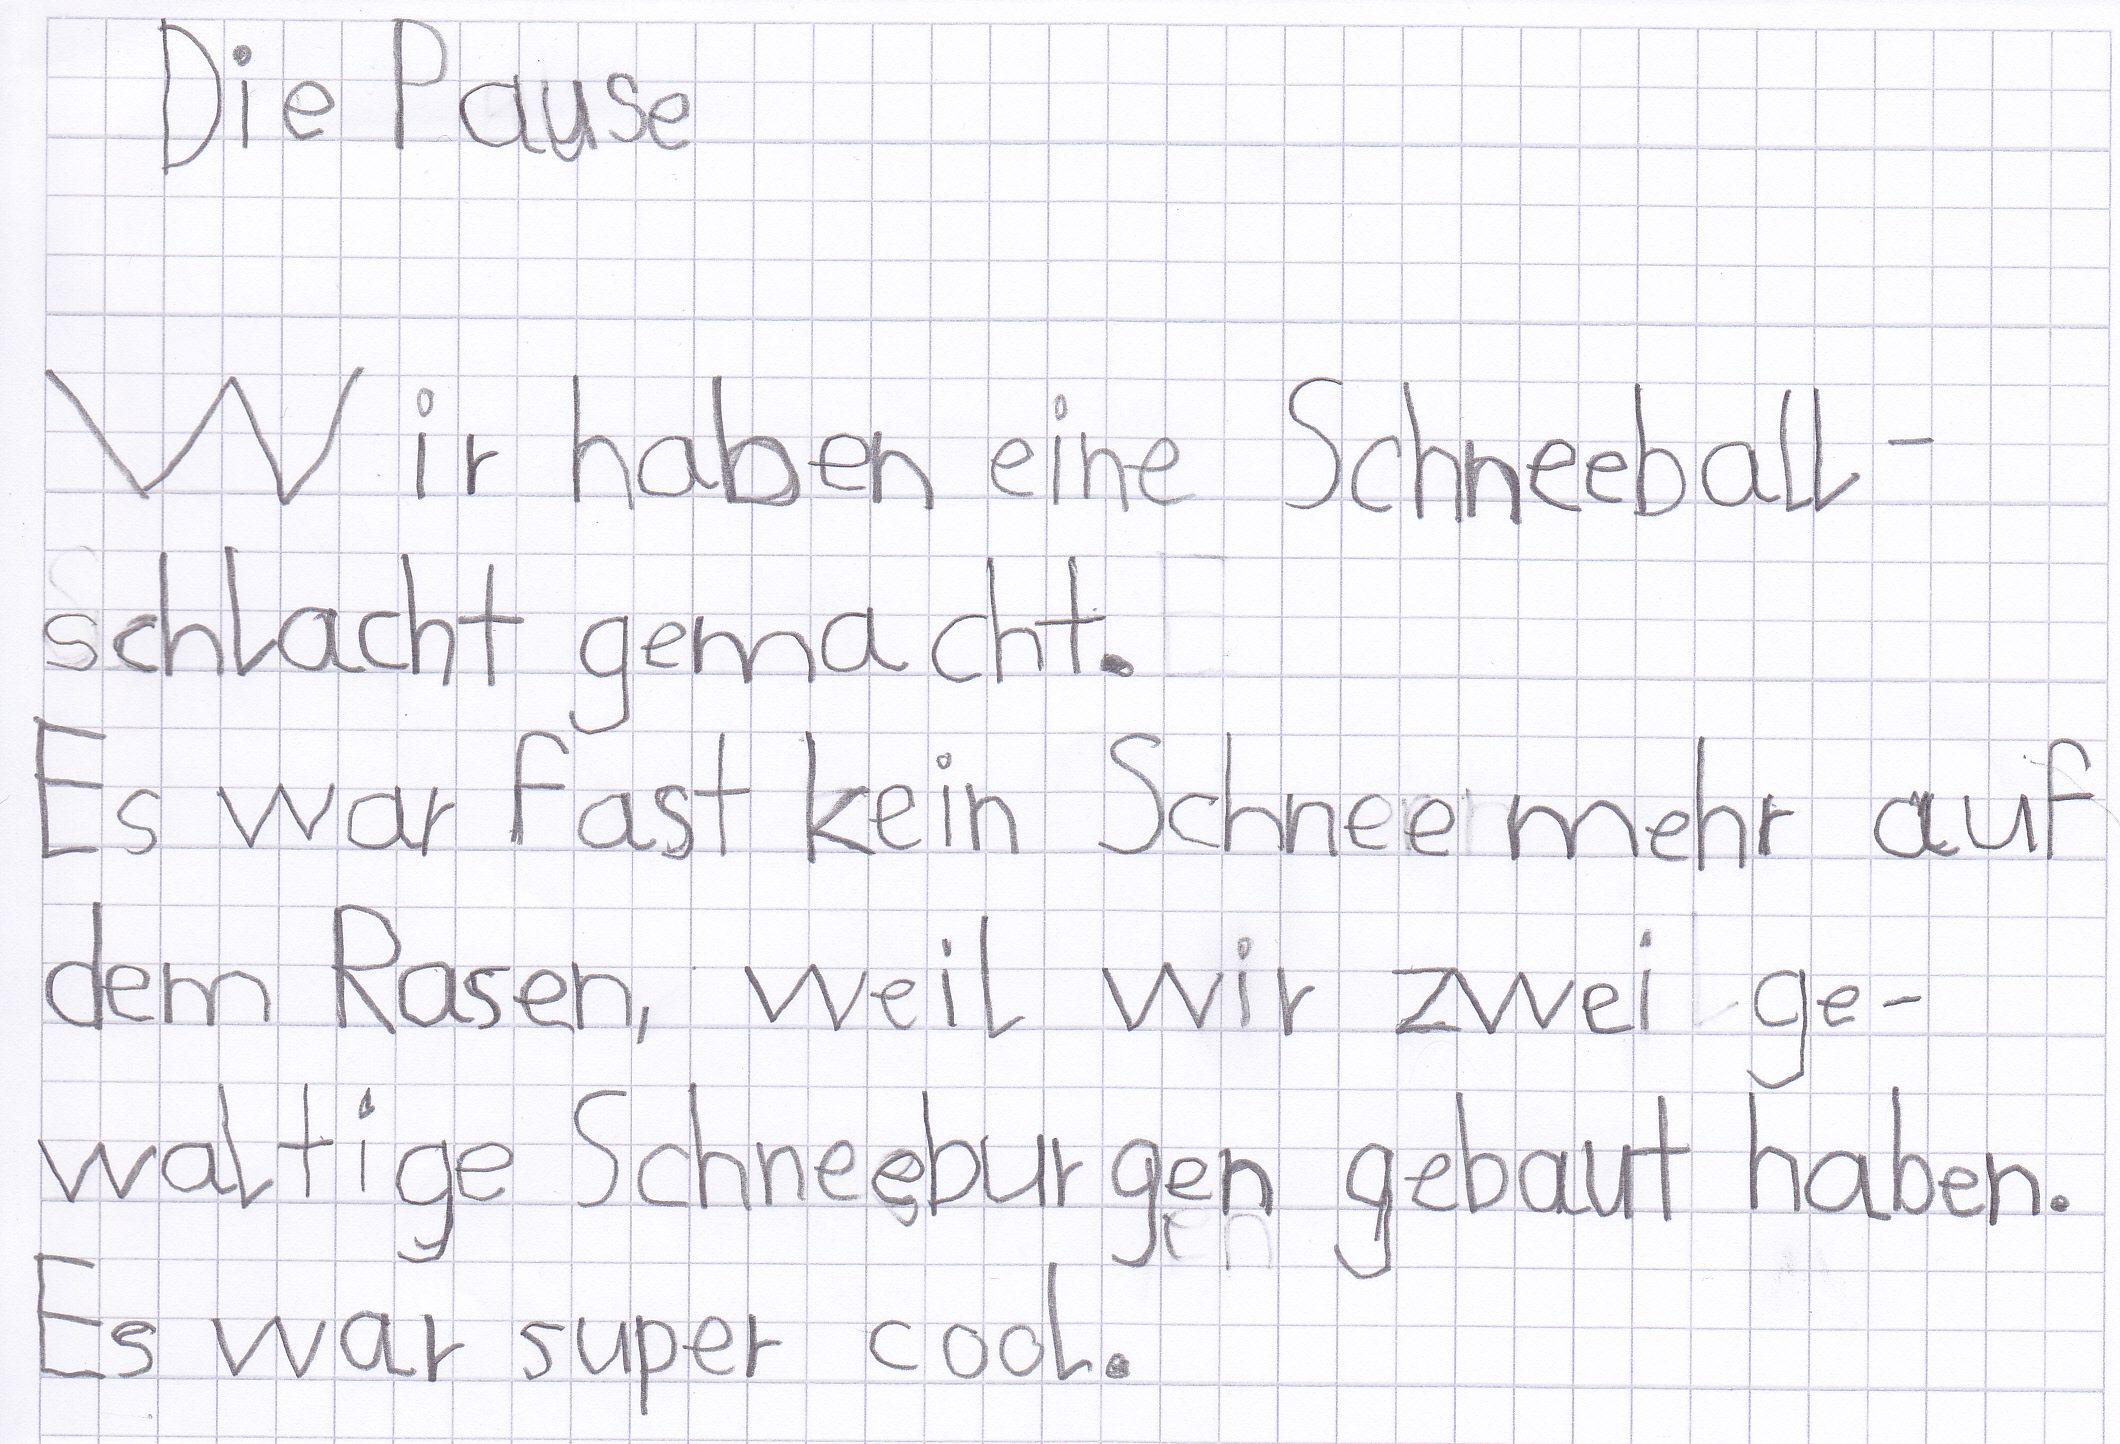 Die Pause
Wir haben eine Schneeball-
schlacht gemacht.
Es war fast kein Schnee mehr auf
dem Rasen, weil wir zwei ge-
waltige Schneeburgen gebaut haben.
Es war super cool.